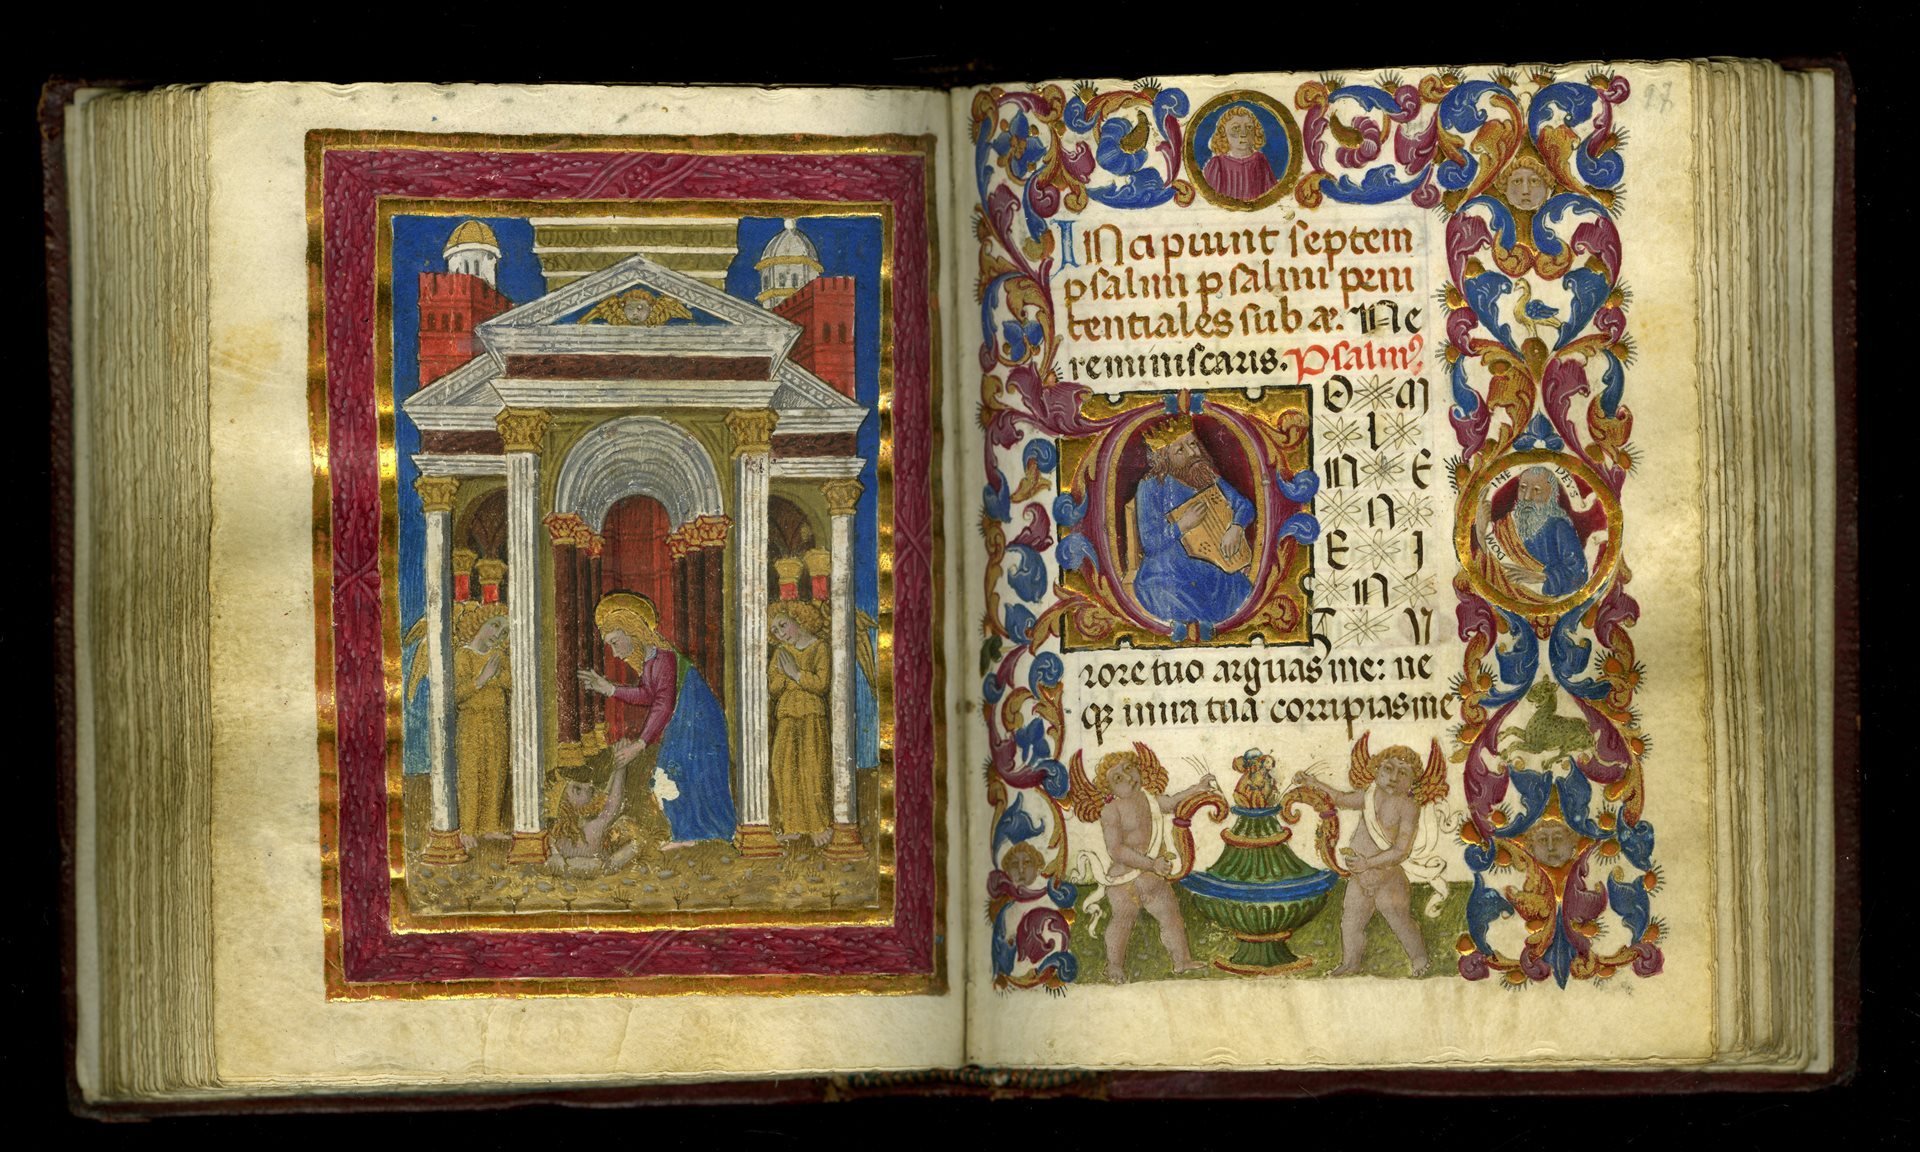 INcipiunt septem
psalmi psalmi peni
tentiales sub æ. Ne
reminiscaris. Psalmꝰ
D O M
I
N E
N
E I
N
F V
rore tuo arguas me: ne
qꝫ in ira tua corripias me
DOM INE DEVS